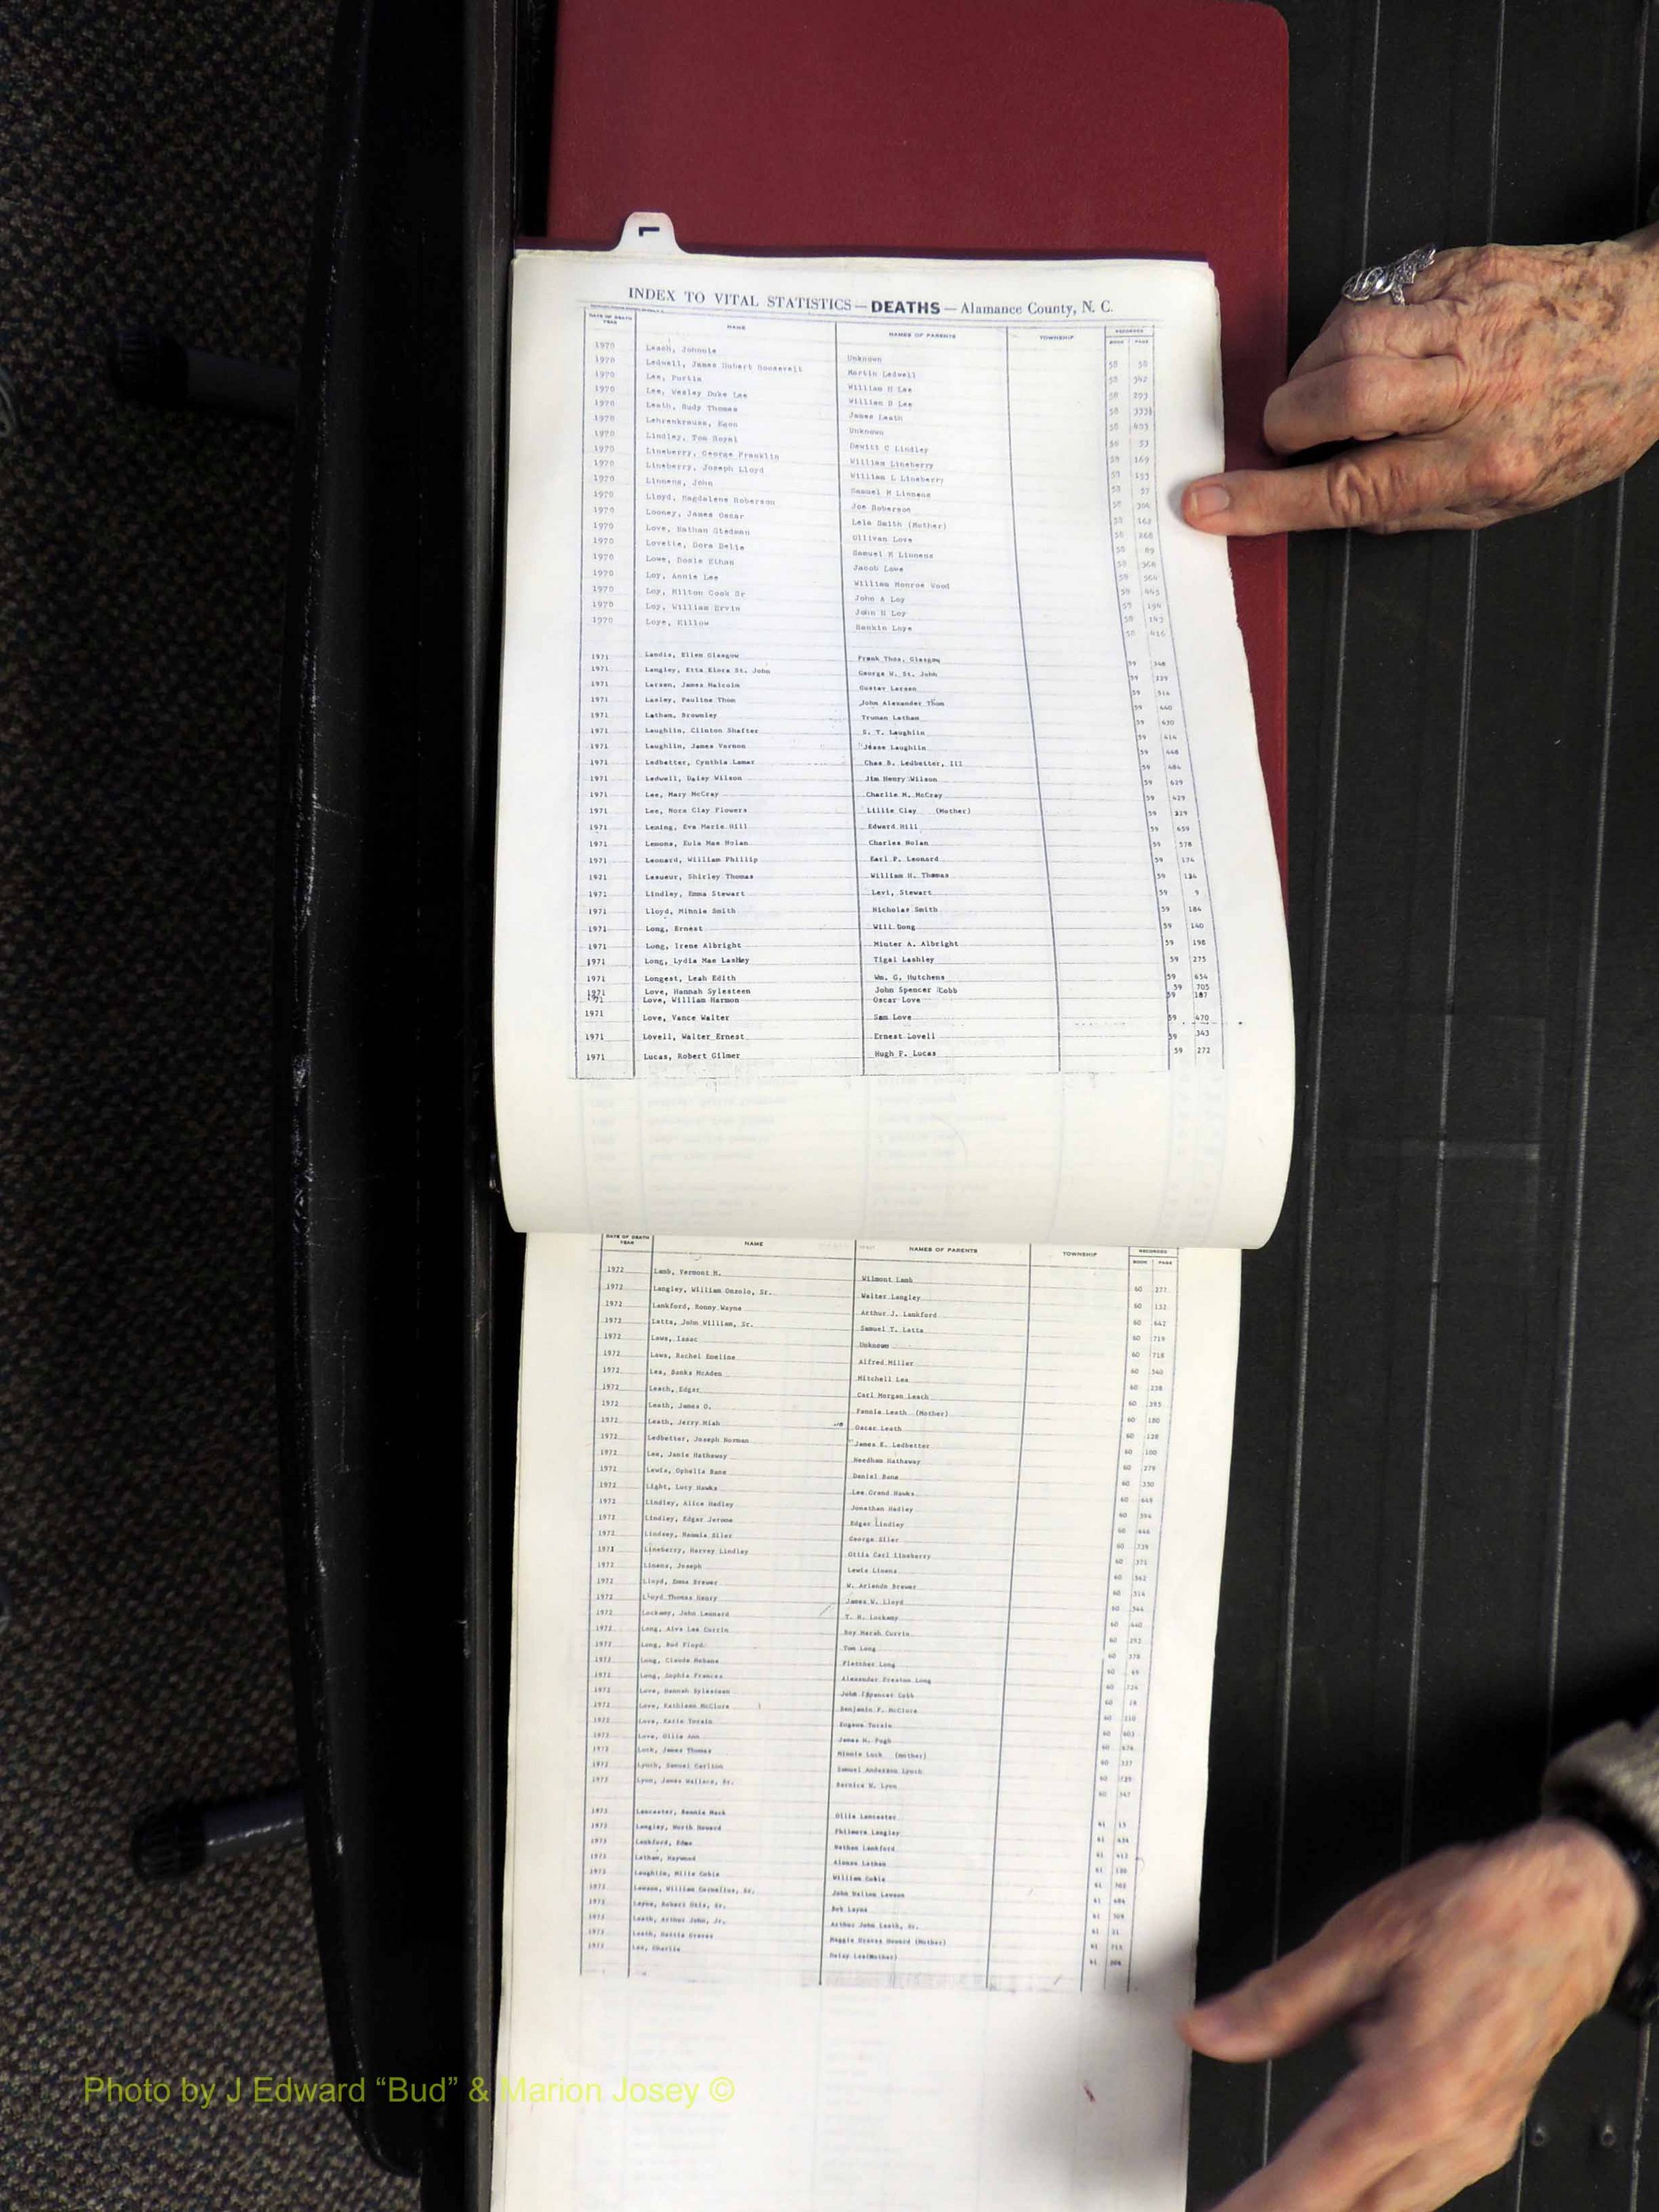 L
INDEX TO VITAL STATISTICS — DEATHS — Alamance County, N. C.
DATE OF DEATH YEAR NAME NAMES OF PARENTS TOWNSHIP RECORDED BOOK PAGE
1970 Leach, Johnnie Unknown 58 58
1970 Ledwell, James Hubert Roosevelt Martin Ledwell 58 342
1970 Lee, Purtis William H Lee 58 293
1970 Lee, Wesley Duke Lee William D Lee 58
1970 Leath, Rudy Thomas James Leath 58 403
1970 Lehrenkrauss, Egon Unknown 58 53
1970 Lindley, Tom Royal Dewitt C Lindley 58 169
1970 Lineberry, George Franklin William Lineberry 58 153
1970 Lineberry, Joseph Lloyd William L Lineberry 58 57
1970 Linnens, John Samuel M Linnens 58 306
1970 Lloyd, Magdalene Roberson Joe Roberson 58 162
1970 Looney, James Oscar Lela Smith (Mother) 58 268
1970 Love, Nathan Stedman Ollivan Love 58 89
1970 Lovette, Dora Delle Samuel M Linnens 58 368
1970 Lowe, Dosie Ethan Jacob Lowe 58 564
1970 Loy, Annie Lee William Monroe Wood 58 445
1970 Loy, Milton Cook Sr John A Loy 58 194
1970 Loy, William Ervin John H Loy 58 143
1970 Loye, Killow Rankin Loye 58 416
1971 Landis, Ellen Glasgow Frank Thos. Glasgow 59 348
1971 Langley, Etta Elora St. John George W. St. John 59 229
1971 Larsen, James Malcolm Gustav Larsen 59 514
1971 Lasley, Pauline Thom John Alexander Thom 59 440
1971 Latham, Brownley Truman Latham 59 630
1971 Laughlin, Clinton Shafter S. T. Laughlin 59 414
1971 Laughlin, James Vernon Jesse Laughlin 59 448
1971 Ledbetter, Cynthia Lamar Chas B. Ledbetter, III 59 484
1971 Ledwell, Daisy Wilson Jim Henry Wilson 59 629
1971 Lee, Mary McCray Charlie M. McCray 59 429
1971 Lee, Nora Clay Flowers Lillie Clay (Mother) 59 329
1971 Leming, Eva Marie Hill Edward Hill 59 659
1971 Lemons, Eula Mae Nolan Charles Nolan 59 578
1971 Leonard, William Phillip Earl P. Leonard 59 174
1921 Lesueur, Shirley Thomas William H. Thomas 59 124
1971 Lindley, Emma Stewart Levi, Stewart 59 9
1971 Lloyd, Minnie Smith Nicholas Smith 59 184
1971 Long, Ernest Will Dong 59 140
1971 Long, Irene Albright Miuter A. Albright 59 198
1971 Long, Lydia Mae Lashley Tigal Lashley 59 275
1971 Longest, Leah Edith Wm. G. Hutchens 59 654
1971 Love, Hannah Sylesteen John Spencer Cobb 59 705
1971 Love, William Harmon Oscar Love 59 187
1971 Love, Vance Walter Sam Love 59 470
1971 Lovell, Walter Ernest Ernest Lovell 59 343
1971 Lucas, Robert Gilmer Hugh F. Lucas 59 272
DATE OF DEATH YEAR NAME NAMES OF PARENTS TOWNSHIP RECORDED BOOK PAGE
1972 Lamb, Vermont H. Wilmont Lamb 60 277
1972 Langley, William Onzolo, Sr. Walter Langley 60 132
1972 Lankford, Ronny Wayne Arthur J. Lankford 60 642
1972 Latta, John William, Sr. Samuel T. Latta 60 719
1972 Laws, Isaac Unknown 60 718
1972 Laws, Rachel Emeline Alfred Miller 60 540
1972 Lea, Banks McAden Mitchell Lea 60 238
1972 Leach, Edgar Carl Morgan Leach 60 395
1972 Leath, James O. Fannie Leath (Mother) 60 180
1972 Leath, Jerry Miah Oscar Leath 60 128
1972 Ledbetter, Joseph Norman James E. Ledbetter 60 100
1972 Lee, Janie Hathaway Needham Hathaway 60 279
1972 Lewis, Ophelia Bane Daniel Bane 60 350
1972 Light, Lucy Hawks Lee Grand Hawks 60 648
1972 Lindley, Alice Hadley Jonathan Hadley 60 594
1972 Lindley, Edgar Jerome Edgar Lindley 60 446
1972 Lindsey, Nannie Siler George Siler 60 739
1971 Lineberry, Harvey Lindley Ottis Carl Lineberry 60 371
1972 Linens, Joseph Lewis Linens 60 562
1972 Lloyd, Emma Brewer W. Arlendo Brewer 60 514
1972 Lloyd Thomas Henry James W. Lloyd 60 544
1972 Lockamy, John Leonard T. H. Lockamy 60 440
1972 Long, Alva Lee Currin Roy Marah Currin 60 292
1972 Long, Bud Floyd Tom Long 60 378
1972 Long, Claude Mebane Fletcher Long 60 69
1972 Long, Sophia Frances Alexander Preston Long 60 324
1972 Love, Hannah Sylesteen John Spencer Cobb 60 18
1972 Love, Kathleen McClure Benjamin F. McClure 60 110
1972 Love, Katie Torain Eugene Torain 60 603
1972 Love, Ollie Ann James H. Pugh 60 676
1972 Luck, James Thomas Minnie Luck (mother) 60 327
1972 Lynch, Samuel Carlton Samuel Anderson Lynch 60 739
1972 Lyon, James Wallace, Sr. Bernice W. Lyon 60 547
1973 Lancaster, Bennie Mack Ollie Lancaster 61 15
1973 Langley, North Howard Philmore Langley 61 434
1973 Lankford, Edna Nathan Lankford 61 412
1973 Latham, Haywood Alonzo Latham 61
1973 Laughlin, Millie Coble William Coble 61
1973 Lawson, William Cornelius, Sr. John Lawson 61 484
1973 Layne, Robert Otis, Sr. Bob Layne 61 309
1973 Leath, Arthur John, Jr. Arthur John Leath, Sr. 61 11
1973 Leath, Hattie Graves Maggie Graves Howard (Mother) 61
1973 Lee, Charlie Daisy Lee(Mother) 61
Photo by J Edward “Bud” & Marion Josey ©